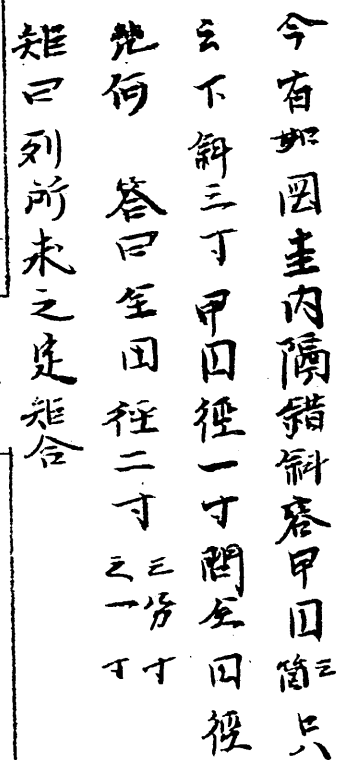 今有如図圭内隔錯斜容甲円三箇只
云下斜三寸甲円徑一寸問全円徑
幾何　答曰全円徑二寸三分寸之一寸
矩曰列所求之定矩合